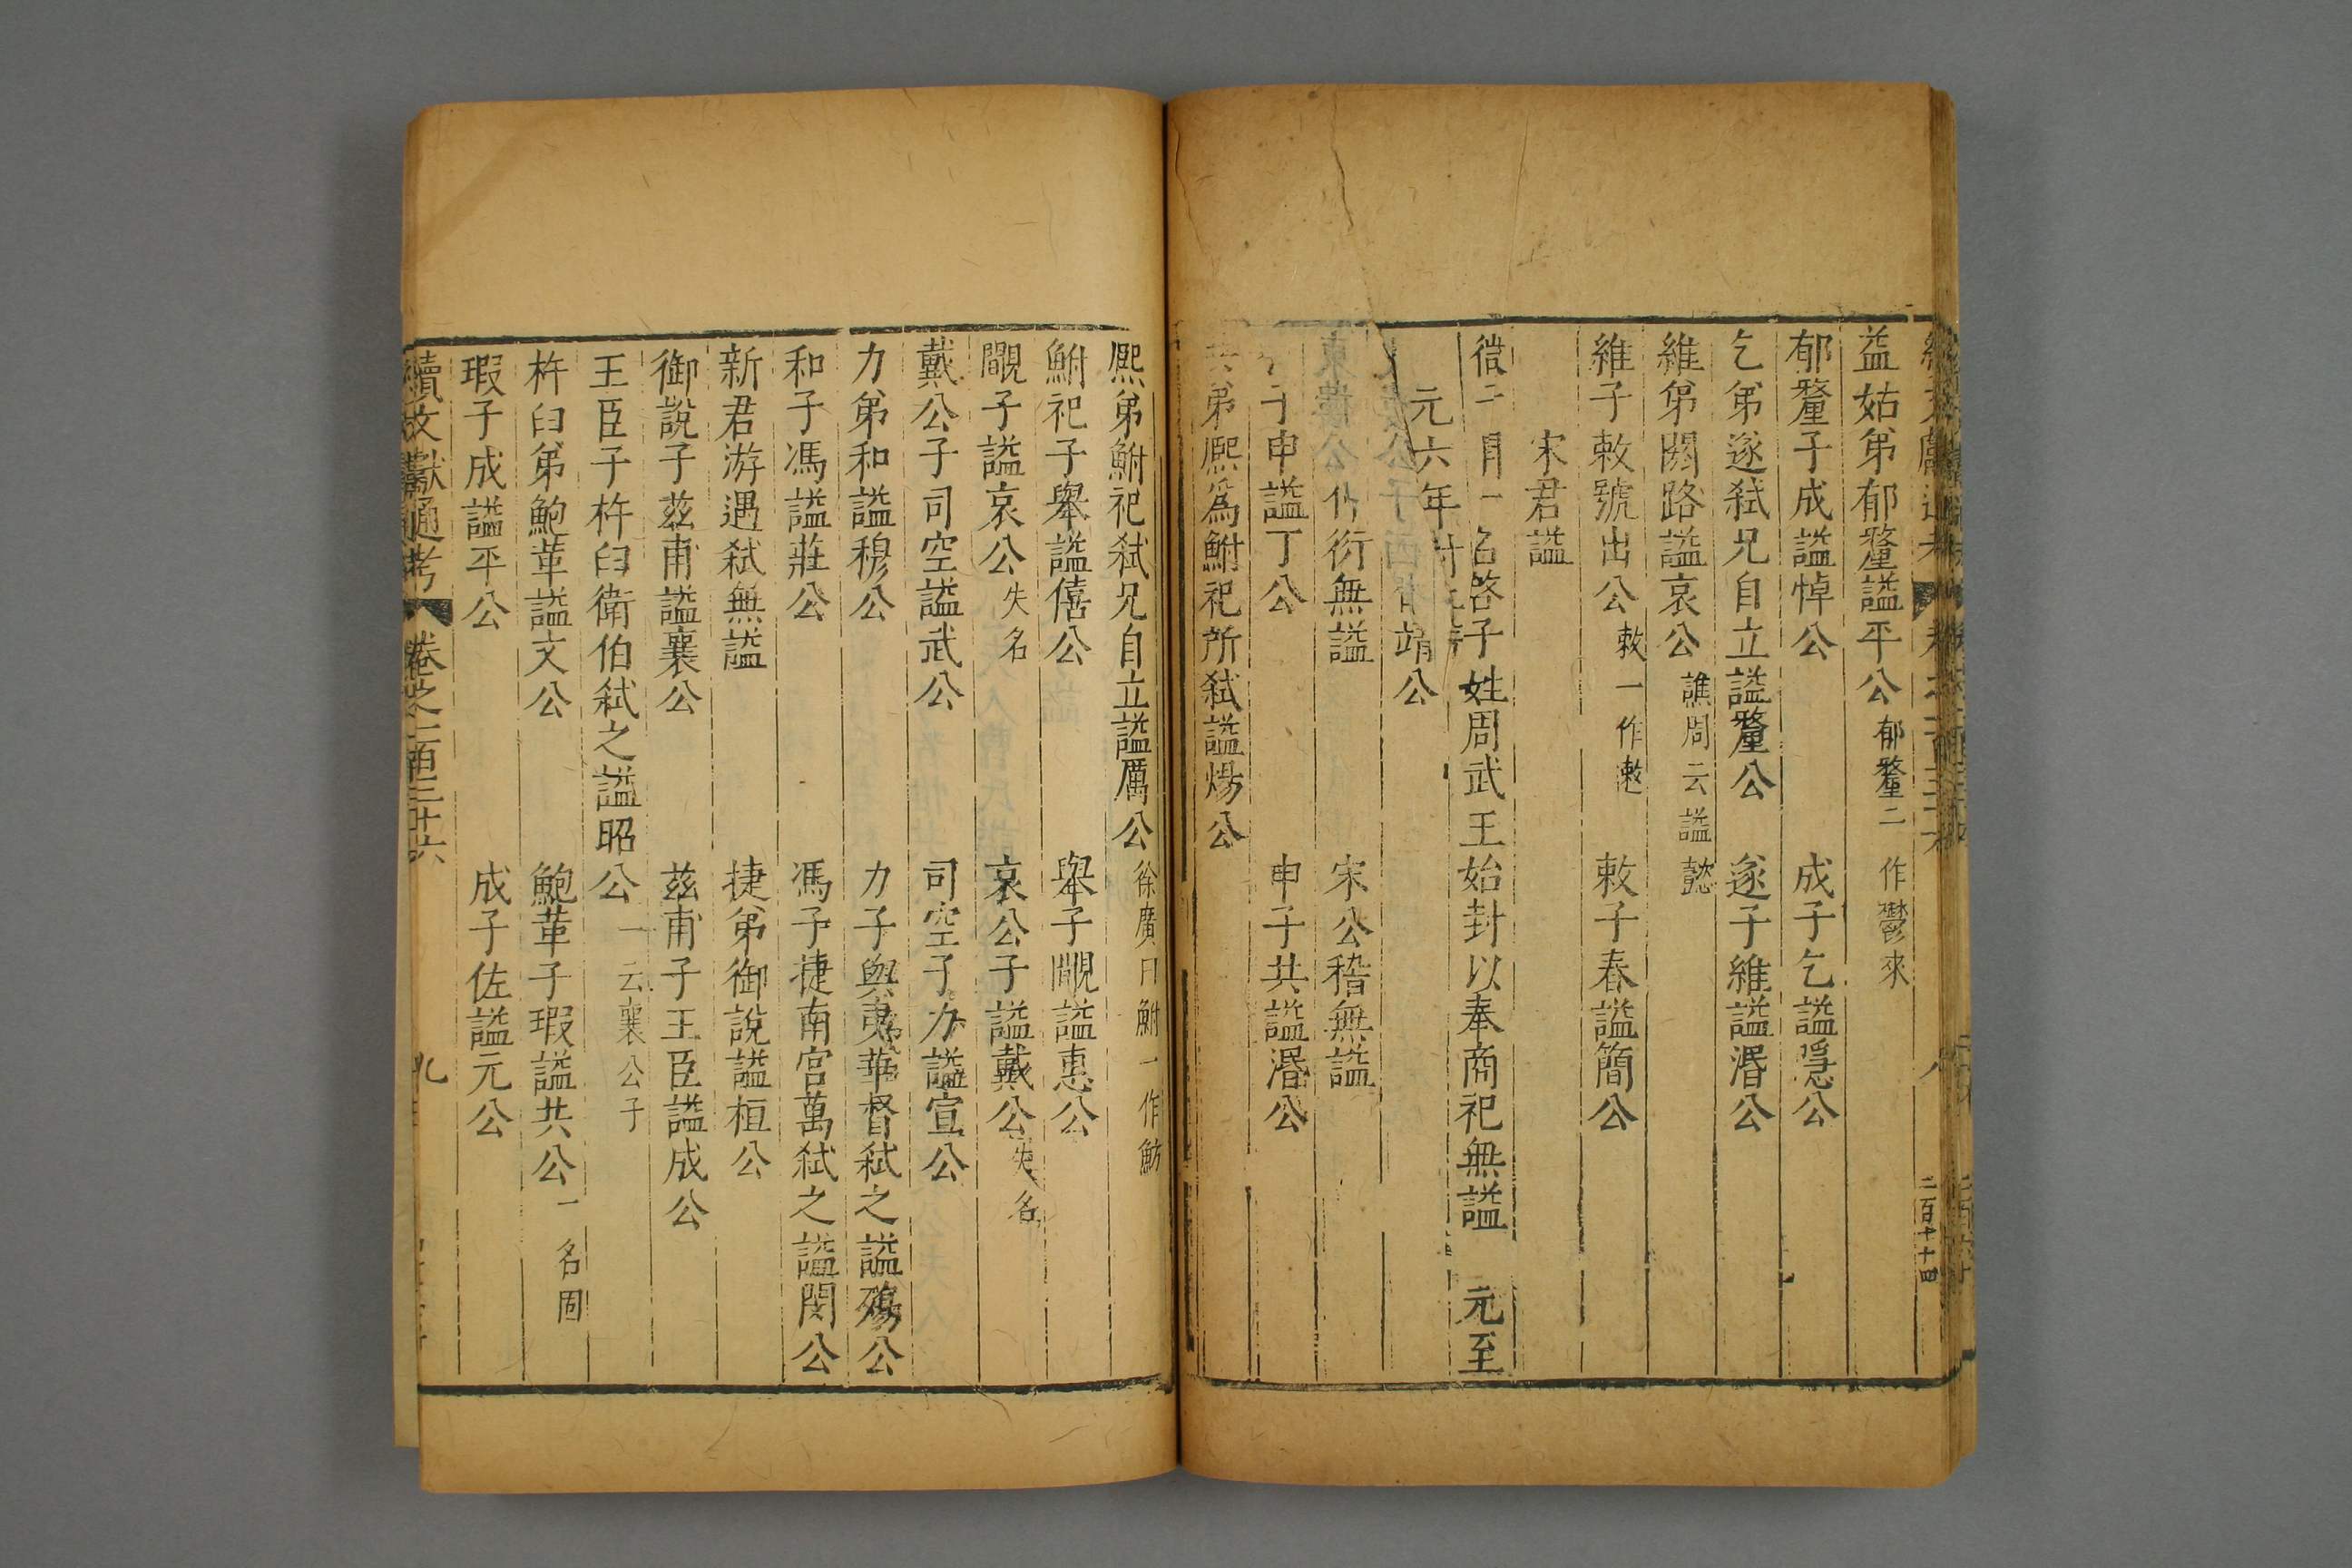 益姑弟郁釐謚平公 郁釐二作鬱來
郁釐子成謚悼公 成子乞謚隱公
乞弟遂弒兄自立謚釐公 遂子維謚湣公
維弟闕路謚哀公 譙周云謚懿
維子敕號出公 敕一作遫 敕子春謚簡公
宋君謚
開一名啓子姓周武王始封以奉商祀無謚 元至
元六年
靖公
衍無謚 宋公稽無謚
子申謚丁公 申子共謚湣公
共弟熈為鮒祀所弒謚煬公
二百十四
熈弟鮒祀弒兄自立謚厲公 徐廣曰鮒一作魴
鮒祀子舉謚僖公 舉子覵謚惠公
覵子謚哀公 失名 哀公子謚戴公 失名
戴公子司空謚武公 司空子力謚宣公
力弟和謚穆公 力子與夷華督弒之謚殤公
和子馮謚莊公 馮子捷南宮萬弒之謚閔公
新君游遇弒無謚 捷弟御說謚桓公
御說子茲甫謚襄公 茲甫子王臣謚成公
王臣子杵臼衛伯弒之謚昭公 一云襄公子
杵臼弟鮑革謚文公 鮑革子瑕謚共公 一名固
瑕子成謚平公 成子佐謚元公
續文獻通考 卷之一百三十六 九